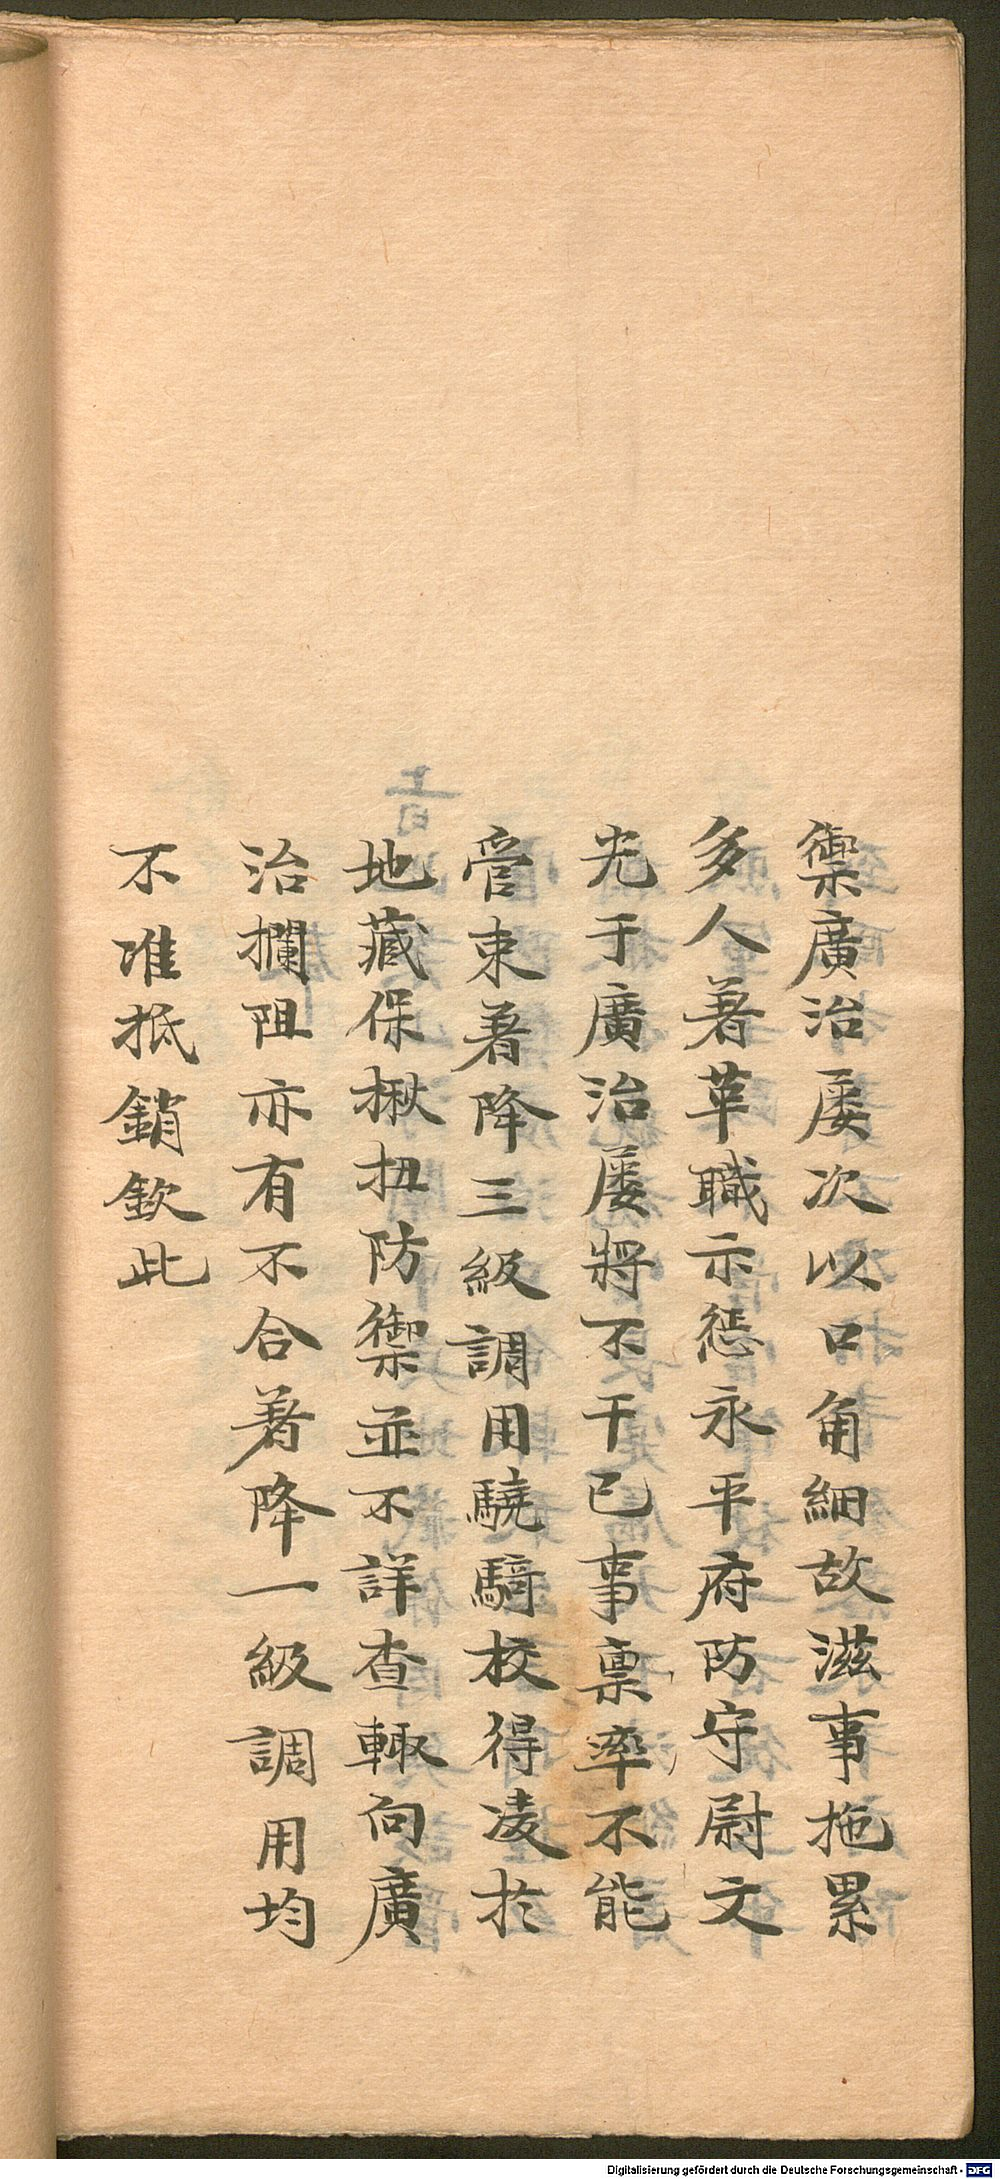 禦廣治屡次以口角細故滋事拖累
多人著革職示惩永平府防守尉文
光于廣治屡將不干已事禀率不能
管束著降三級調用驍騎校得凌於
地藏保揪扭防禦並不詳查輙向廣
治攔阻亦有不合著降一級調用均
不准抵銷欽此
Digitalisierung gefördert durch die Deutsche Forschungsgemeinschaft - DFG